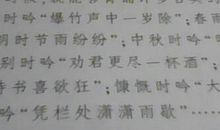 时吟“爆竹声中一岁除”；春
明时节雨纷纷”；中秋时吟“
别时吟“劝君更尽一杯酒”；
诗书喜欲狂”；慷慨时吟“大
吟“凭栏处潇潇雨歇”…